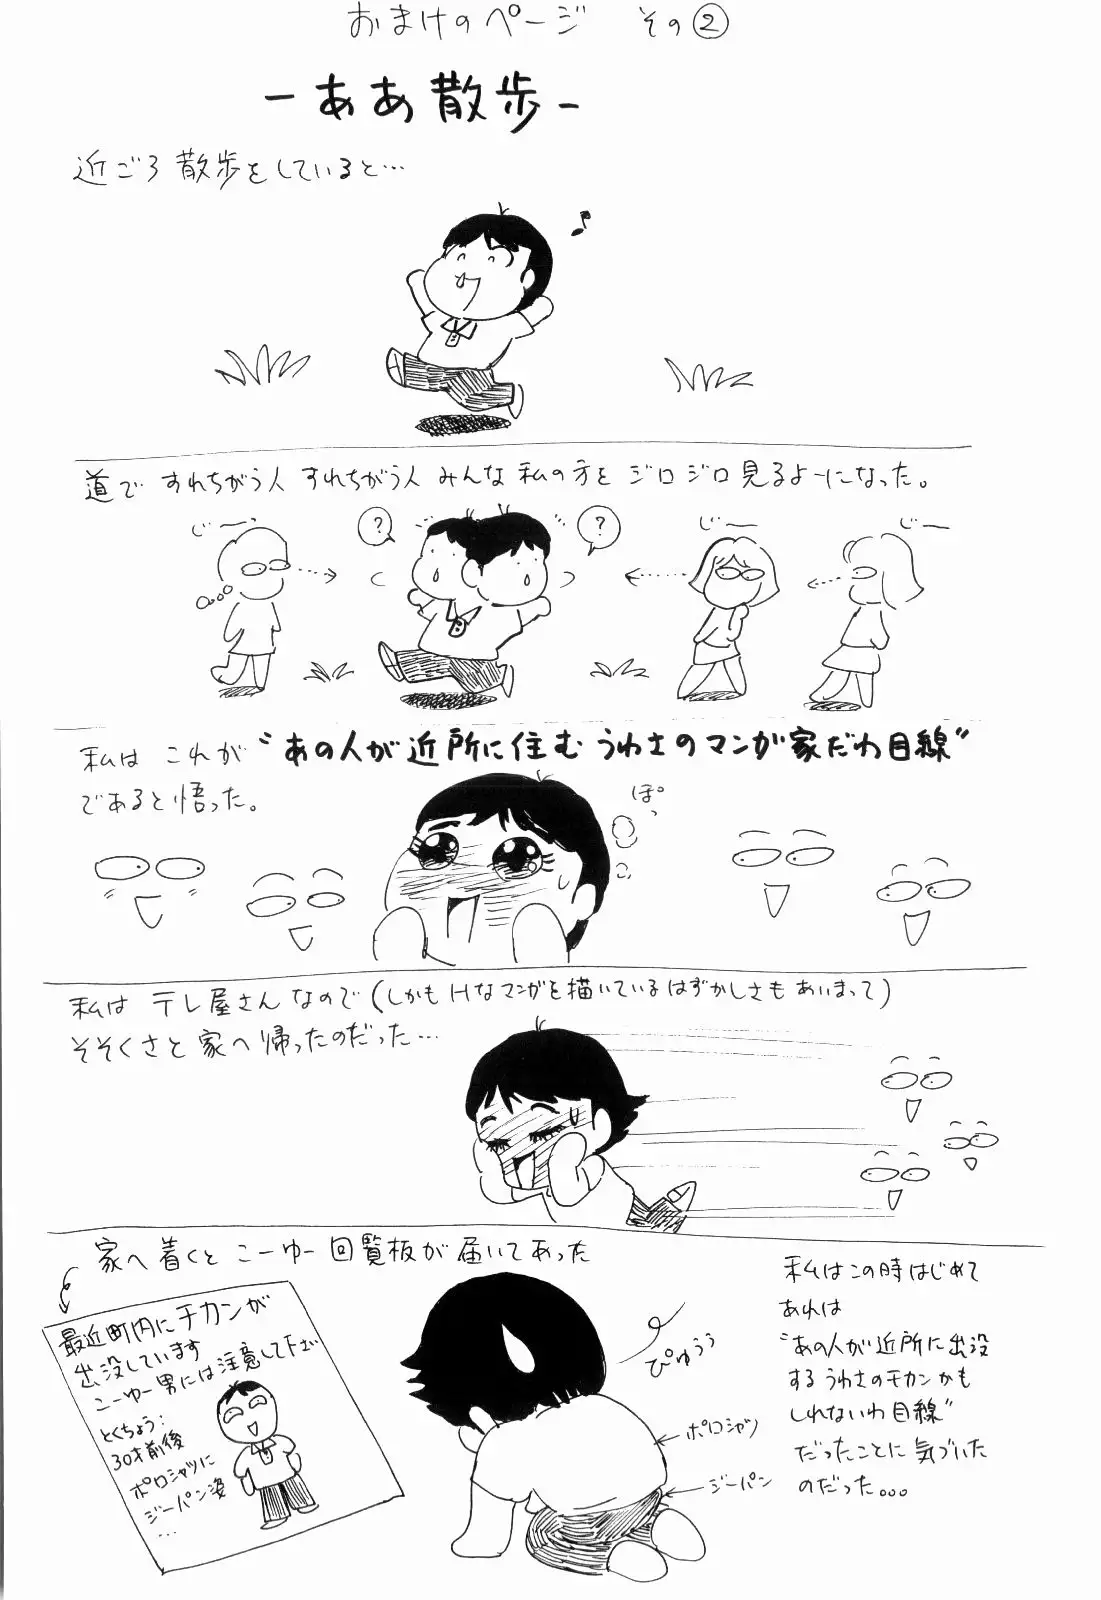 おまけのページ その②
-ああ散歩-
近ごろ散歩をしていると…
道で すれちがう人 すれちがう人 みんな 私の方を ジロジロ見るよーになった。
じーっ
?
?
じー
じー
私は これが “あの人が近所に住む うわさのマンガ家だわ目線”
であると悟った。
ぽっ
私は テレ屋さんなので(しかもHなマンガを描いているはずかしさもあいまって)
そそくさと 家へ帰ったのだった…
家へ着くと こーゆー回覧板が届いてあった
最近町内にチカンが
出没しています
こーゆー男には注意して下さい
とくちょう:
30才前後
ポロシャツに
ジーパン姿
…
ぴゅうぅ
ポロシャツ
ジーパン
私はこの時はじめて
あれは
“あの人が近所に出没
するうわさのチカンかも
しれないわ目線”
だったことに気づいた
のだった。。。